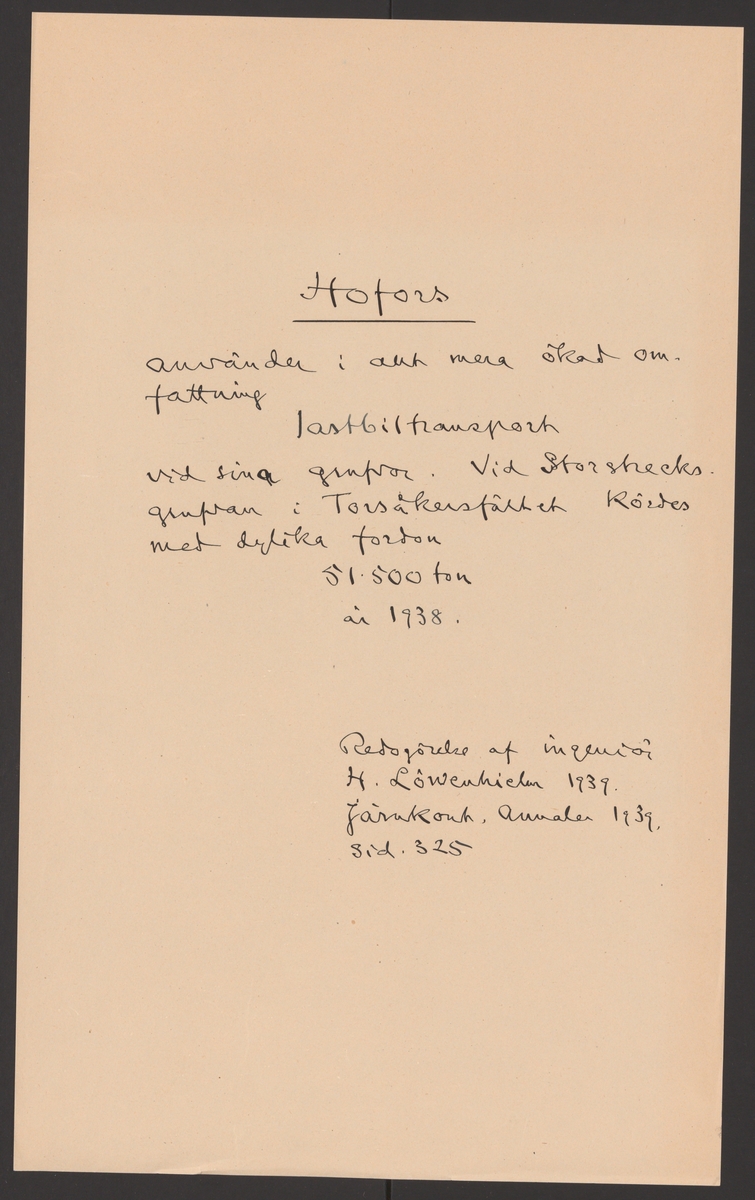 Hofors
använder i allt mera ökad om-
fattning
lastbiltransport
vid sina grufvor. Vid Storstrecks-
grufvan i Torsåkersfältet kördes
med dylika fordon
51.500 ton
år 1938.
Redogörelse af ingeniör
H. Löwenhielm 1939.
Järnkont. Annaler 1939,
Sid. 325